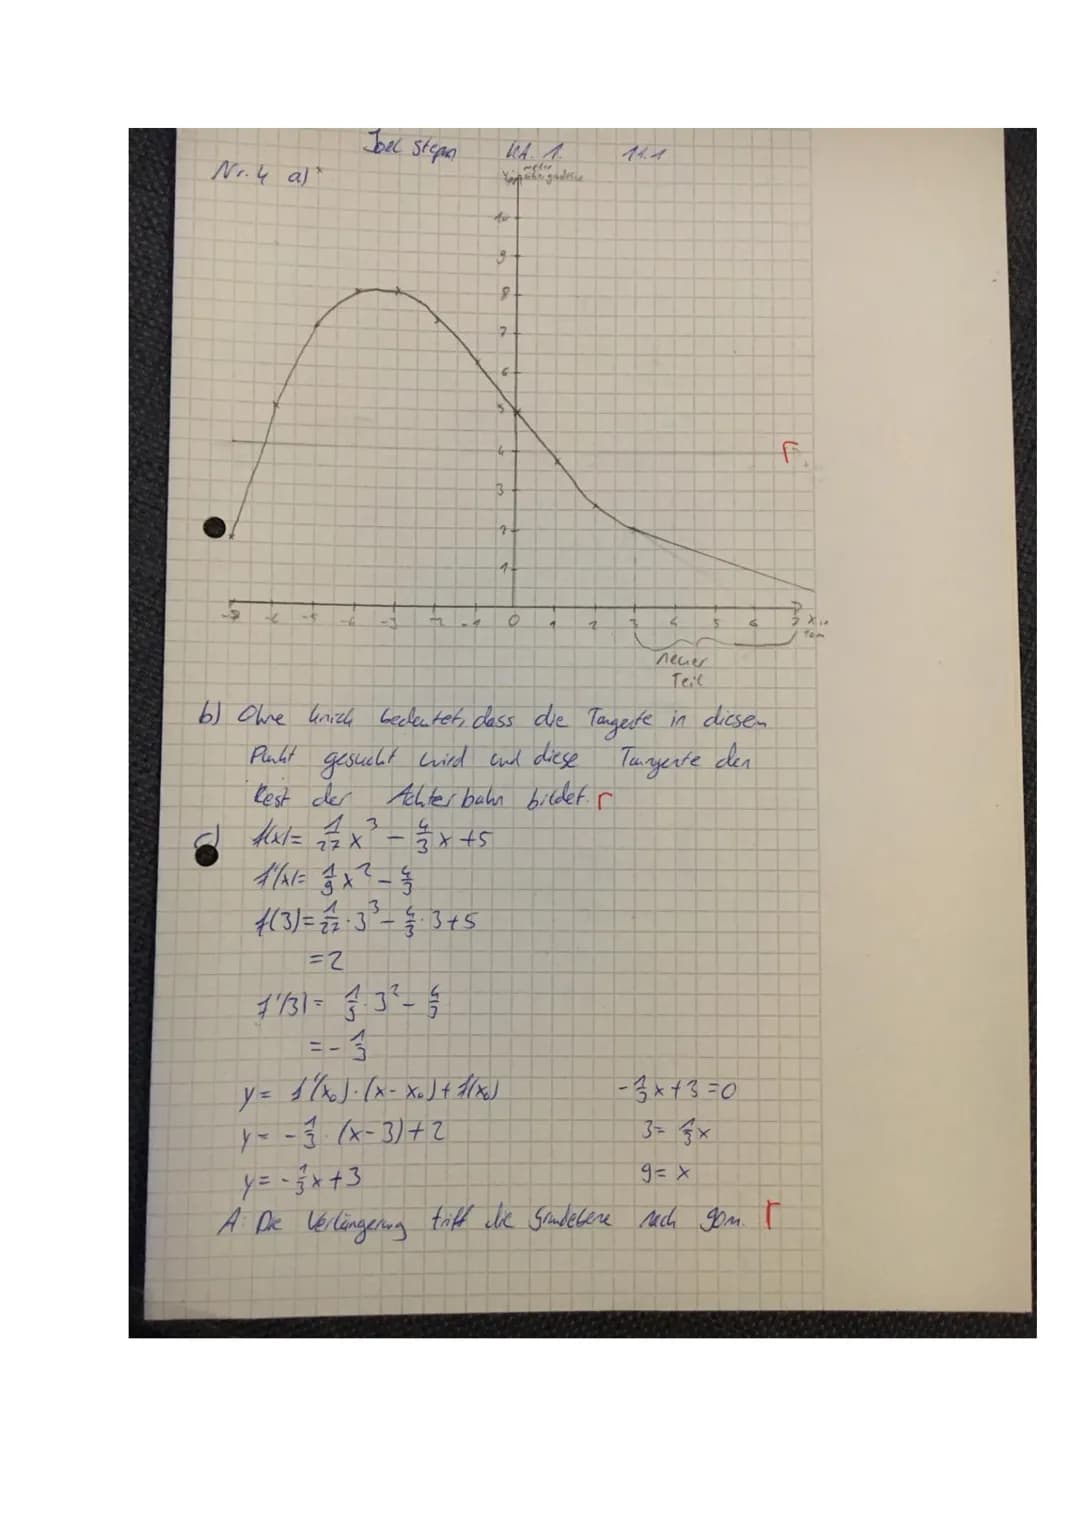 Joel Stepan KA. 1. 11.1
Nr. 4 a)
10
9
8
7
6
5
4
3
2
1
-7 -6 -5 -4 -3 -2 -1 0 1 2 3 4 5 6 7 x in
10m
neuer
Teil
b) Ohne knick bedeutet, dass die Tangente in diesem
Punkt gesucht wird und diese Tangente den
Rest der Achterbahn bildet. r
c) f(x)= 1/27 x³ - 4/3 x + 5
f'(x)= 1/9 x² - 4/3
f(3)= 1/27 · 3³ - 4/3 · 3 + 5
= 2
f'(3)= 1/9 · 3² - 4/3
= - 1/3
y = f'(x₀) · (x - x₀) + f(x₀)
y = - 1/3 · (x - 3) + 2
y = - 1/3 x + 3
- 1/3 x + 3 = 0
3 = 1/3 x
9 = x
A: Die Verlängerung triff die Grundebene nach 90m. r